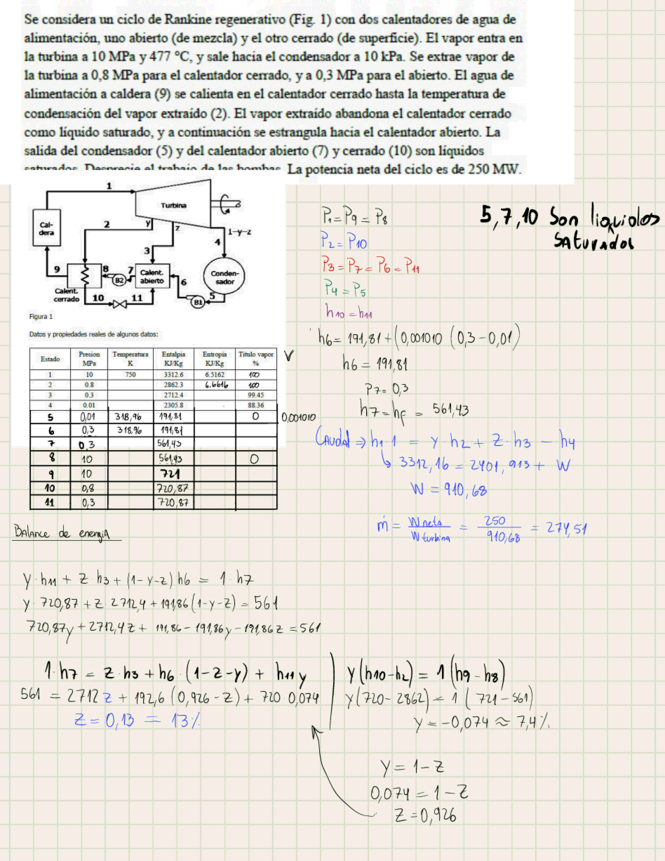 Se considera un ciclo de Rankine regenerativo (Fig. 1) con dos calentadores de agua de
alimentación, uno abierto (de mezcla) y el otro cerrado (de superficie). El vapor entra en
la turbina a 10 MPa y 477 °C, y sale hacia el condensador a 10 kPa. Se extrae vapor de
la turbina a 0,8 MPa para el calentador cerrado, y a 0,3 MPa para el abierto. El agua de
alimentación a caldera (9) se calienta en el calentador cerrado hasta la temperatura de
condensación del vapor extraído (2). El vapor extraído abandona el calentador cerrado
como líquido saturado, y a continuación se estrangula hacia el calentador abierto. La
salida del condensador (5) y del calentador abierto (7) y cerrado (10) son líquidos
saturados. Desprecie el trabajo de las bombas. La potencia neta del ciclo es de 250 MW.
1
Turbina
Cal-
dera
2
y
z
1-y-z
3
4
9
8
7
B2
Calent.
abierto
6
Conden-
sador
5
B1
Calent.
cerrado
10
11
Figura 1
Datos y propiedades reales de algunos datos:
Estado Presion MPa Temperatura K Entalpia KJ/Kg Entropia KJ/Kg Titulo vapor % V
1 10 750 3312.6 6.5162 100
2 0.8 2862.3 6.6616 100
3 0.3 2712.4 99.45
4 0.01 2305.8 88.36
5 0,01 318,96 191,81 0 0,001010
6 0,3 318.96 191,81
7 0,3 561,43
8 10 561,43 0
9 10 721
10 0,8 720,87
11 0,3 720,87
P1=P9=P8
P2=P10
P3=P7=P6=P11
P4=P5
h10=h11
5,7,10 Son liquidos
SATURADOS
h6= 191,81+(0,001010 (0,3-0,01)
h6 = 191,81
P7=0,3
h7=hf = 561,43
Caudal → h1 1 = y h2 + z·h3 - h4
↳ 3312,16 = 2401,913 + W
W = 910,68
ṁ = Wneta / Wturbina = 250 / 910,68 = 274,51
Balance de energia
y·h11 + z h3 + (1-y-z) h6 = 1·h7
y·720,87+z 2712,4+191,86(1-y-z)=561
720,87y+2712,4z+191,86-191,86y-191,86z=561
1·h7 = z·h3+h6·(1-z-y) + h11 y
561 = 2712 z + 192,6 (0,926-z) + 720 0,074
z=0,13 = 13%
y(h10-h2) = 1(h9-h8)
y(720-2862)=1 ( 721-561)
y=-0,074 ≈ 7,4%
y = 1-z
0,074 = 1-z
z=0,926